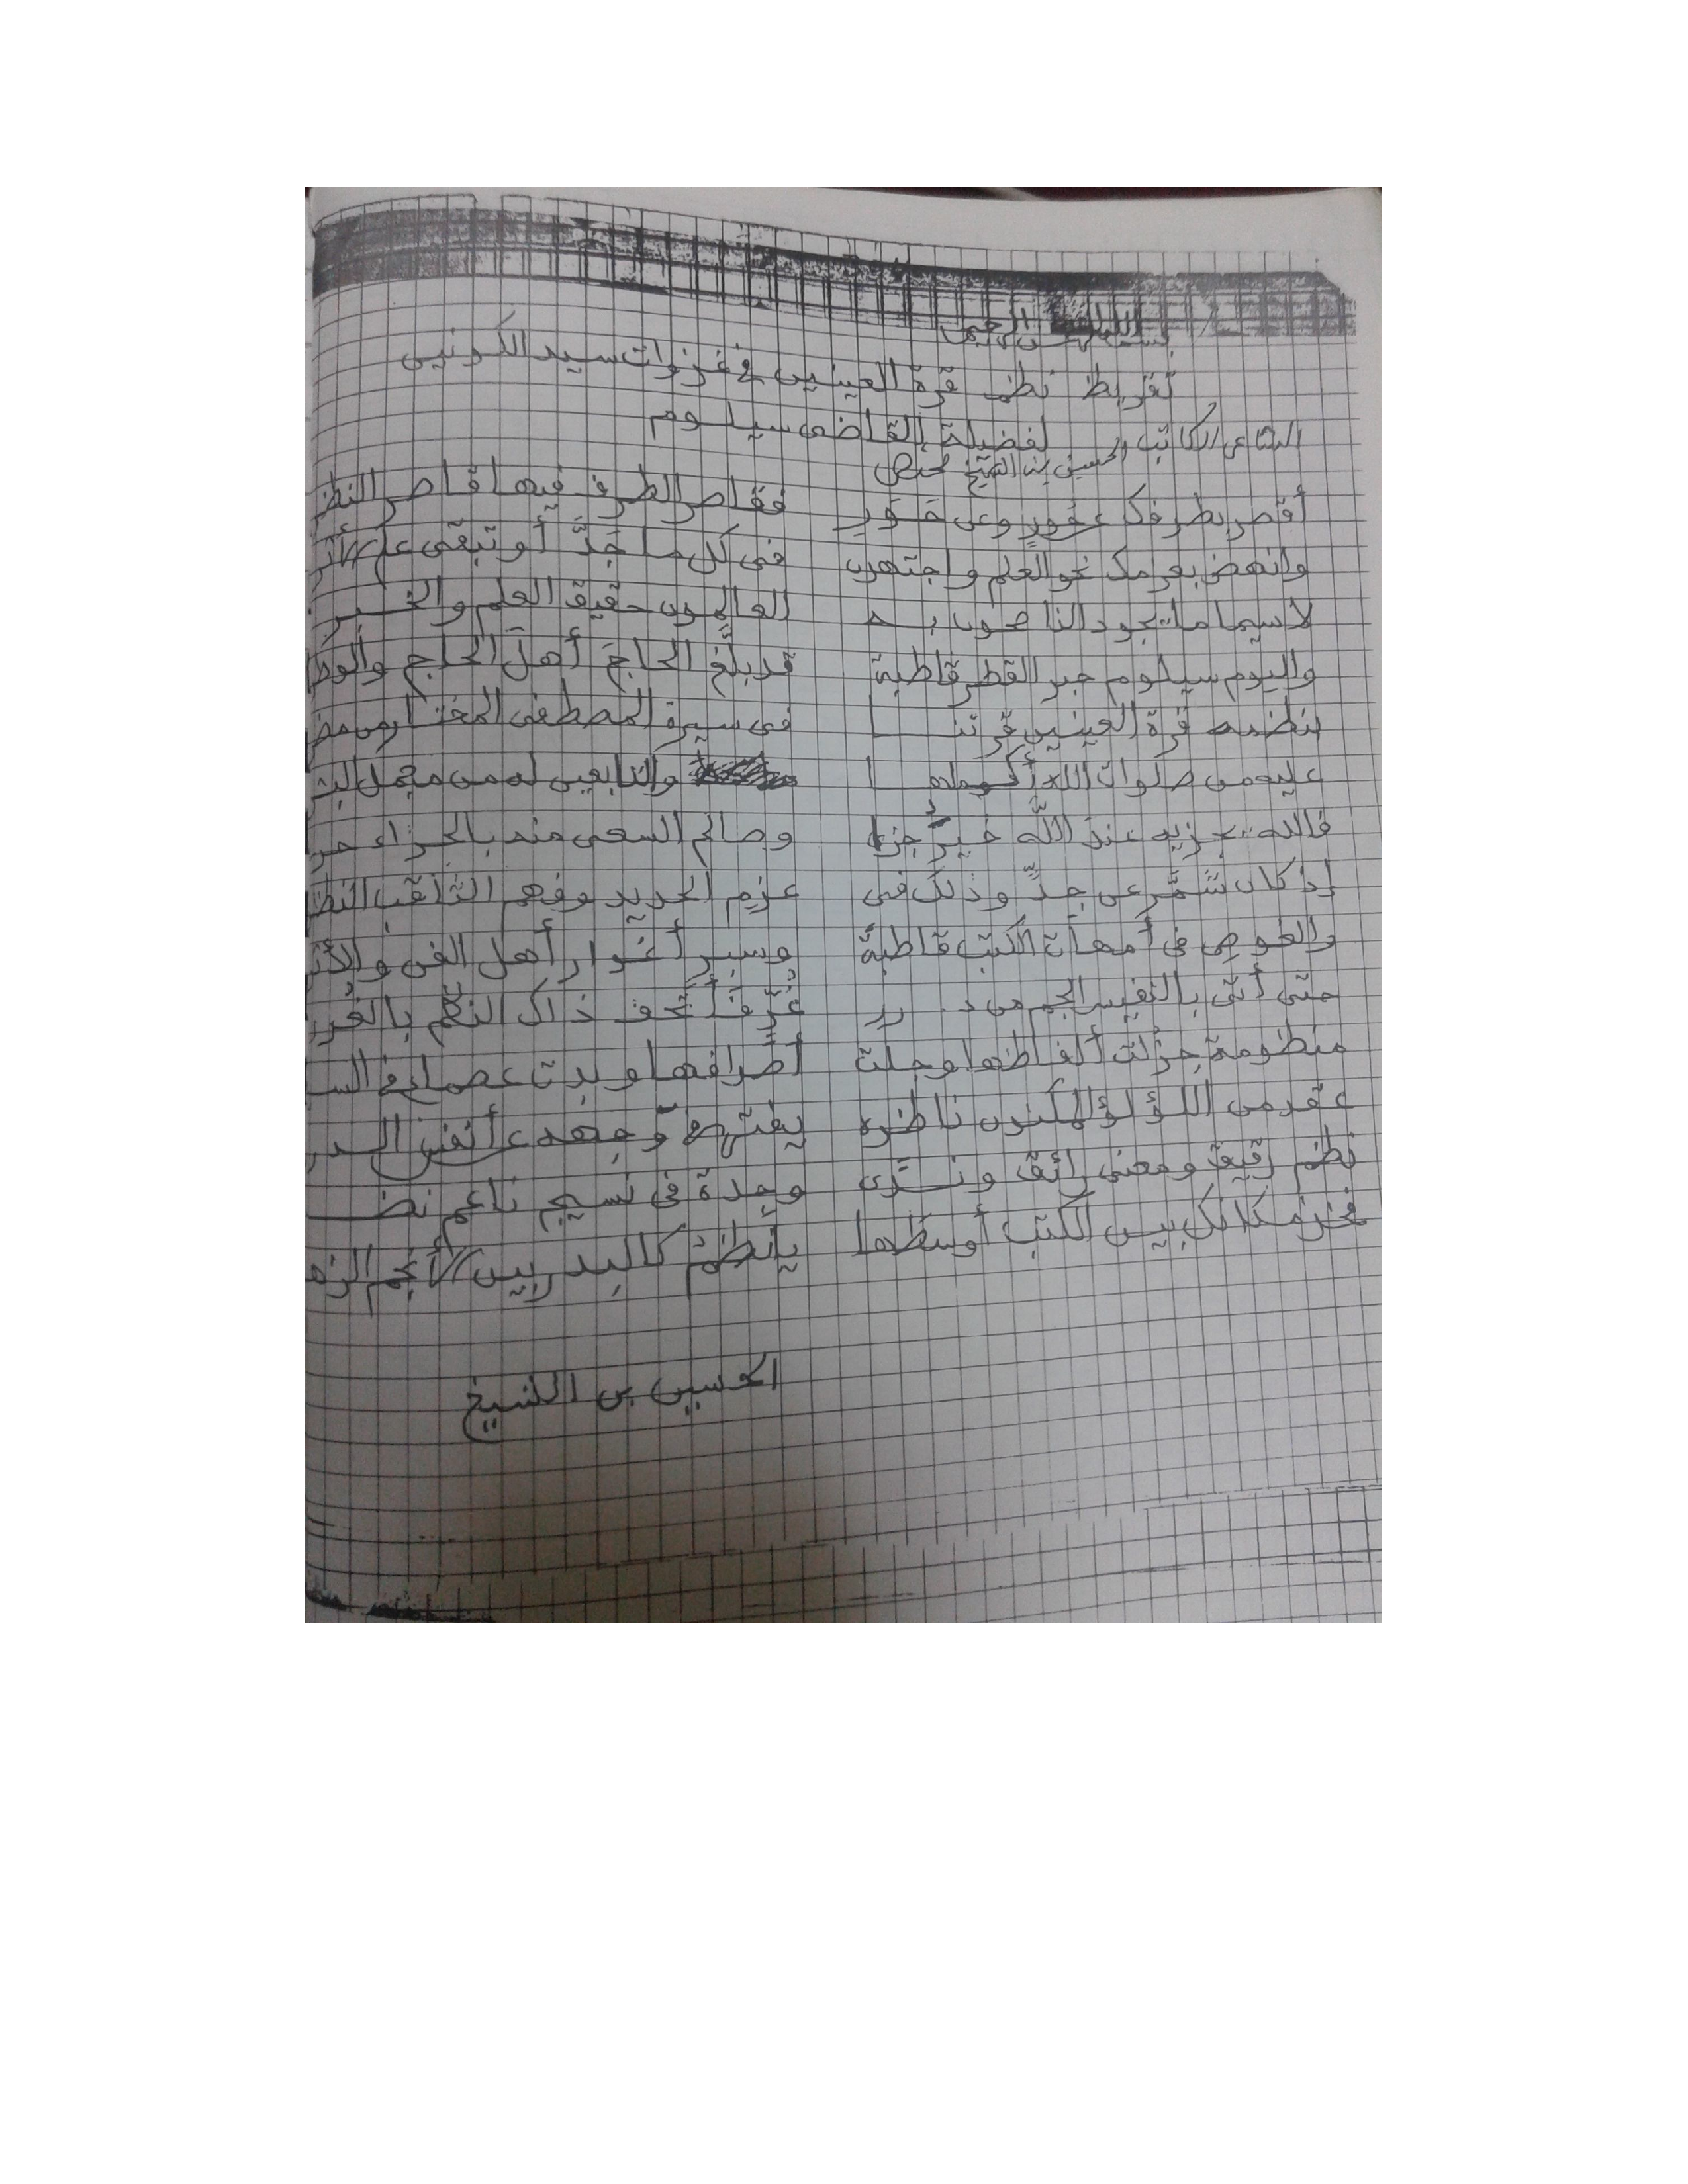 بسم الله الرحمن الرحيم
تقريظ نظم قرة العينين في غزوات سيد الكونين
لفضيلة القاضي سيلوم
الشاعر الكاتب الحسين بن الشيخ محنض
أقصر بطرفك عن حور وعن حَوَر فقاصر الطرف فيها قاصر النظر
وانهض بعزمك نحو العلم واجتهدن في كل ما جَدَّ أو تبقى على الأثر
لاسيما ما يجود الناصحون بـه العالمون حقيق العلم والخـبـر
واليوم سيلوم حبر القطر قاطبة قد بلّغ الحاجَ أهلَ الحاج والوطر
بنظمه قرة العينين قرتنـا في سيرة المصطفى المختار من مضر
عليه من صلوات الله أكملهـا والتابعين له من مجمل البشر
فالله يجزيه عند اللَّه خيرُ جزا وصالح السعي منه بالجزاء حر
إذ كان شمَّر عن جِدٍّ وذلك في عزم الحديد وفهم الثاقب النظر
والغوص في أمهات الكتب قاطبةً وسبرِ أغوار أهل الفن والأثر
حتى أتى بالنفيس الجم من درر غُرٍّ فأتحف ذاك النظم بالغُرر
منظومة جزلت ألفاظها وجلت وبدت
عقد من اللؤلؤ المكنون ناظره يفتر في وجهه عن أنفس الدرر
نظم رقيق ومعنى رائق ونـرى وجدة في نسيج ناعم نضـر
فخذ مكانك بين الكتب أوسطها يا نظمُ كالبدر بين الأنجم الزهر
الحسين بن الشيخ